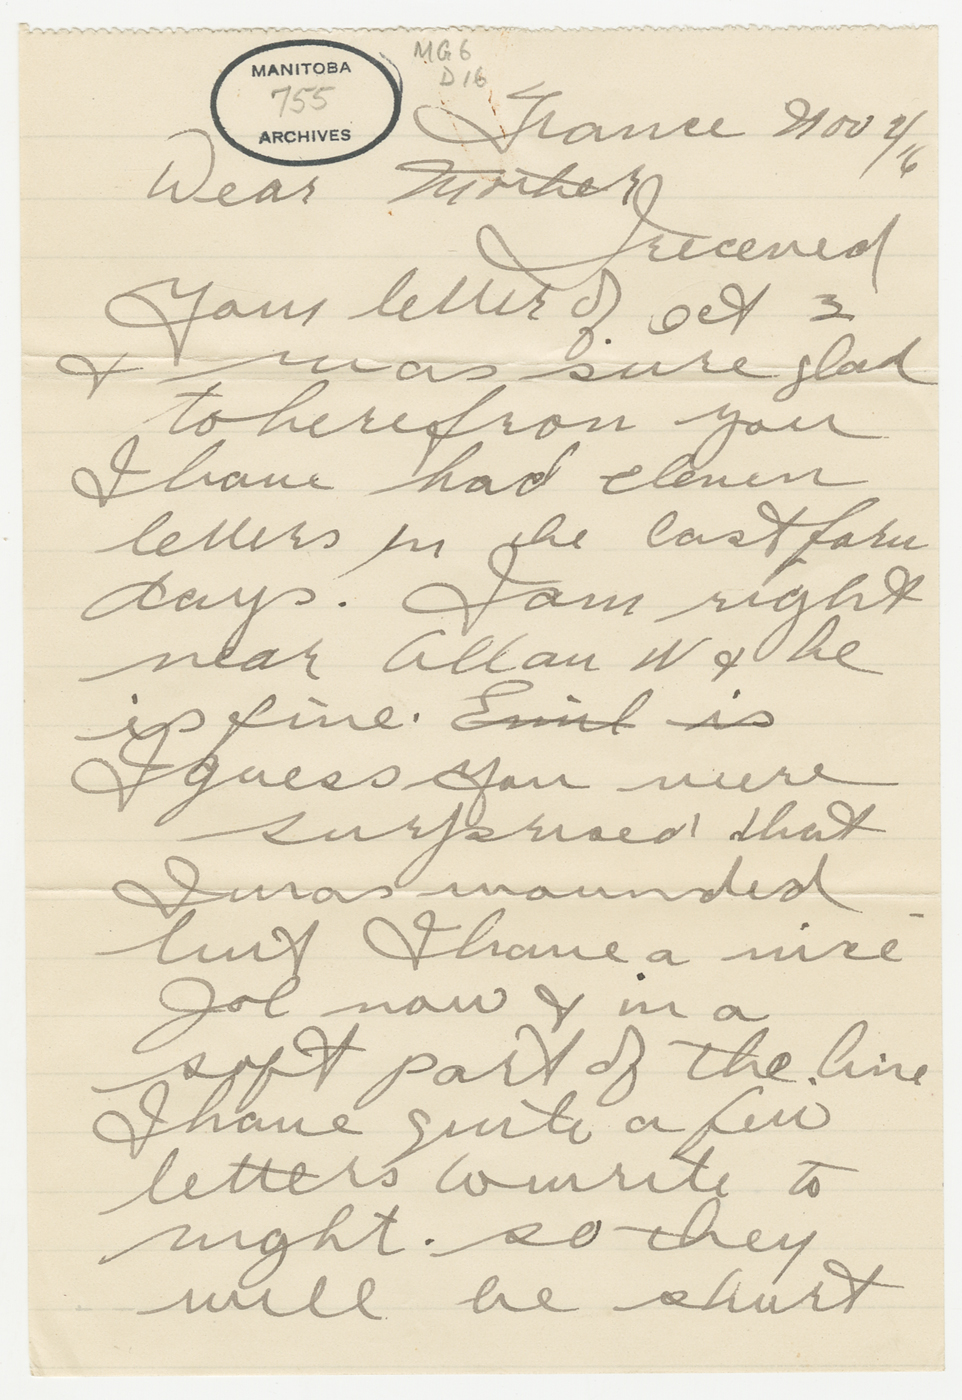 MANITOBA
755
ARCHIVES
MG6
D16
France Nov 2/16
Dear Mother
I received
Your letter of Oct 3
& was sure glad
to here from you
I have had eleven
letters in the last few
days. I am right
near Allan W & he
is fine. Emil is
I guess you were
surprised that
I was wounded
but I have a nice
Job now & in a
soft part of the line
I have quite a few
letters to write to
night. so they
will be short